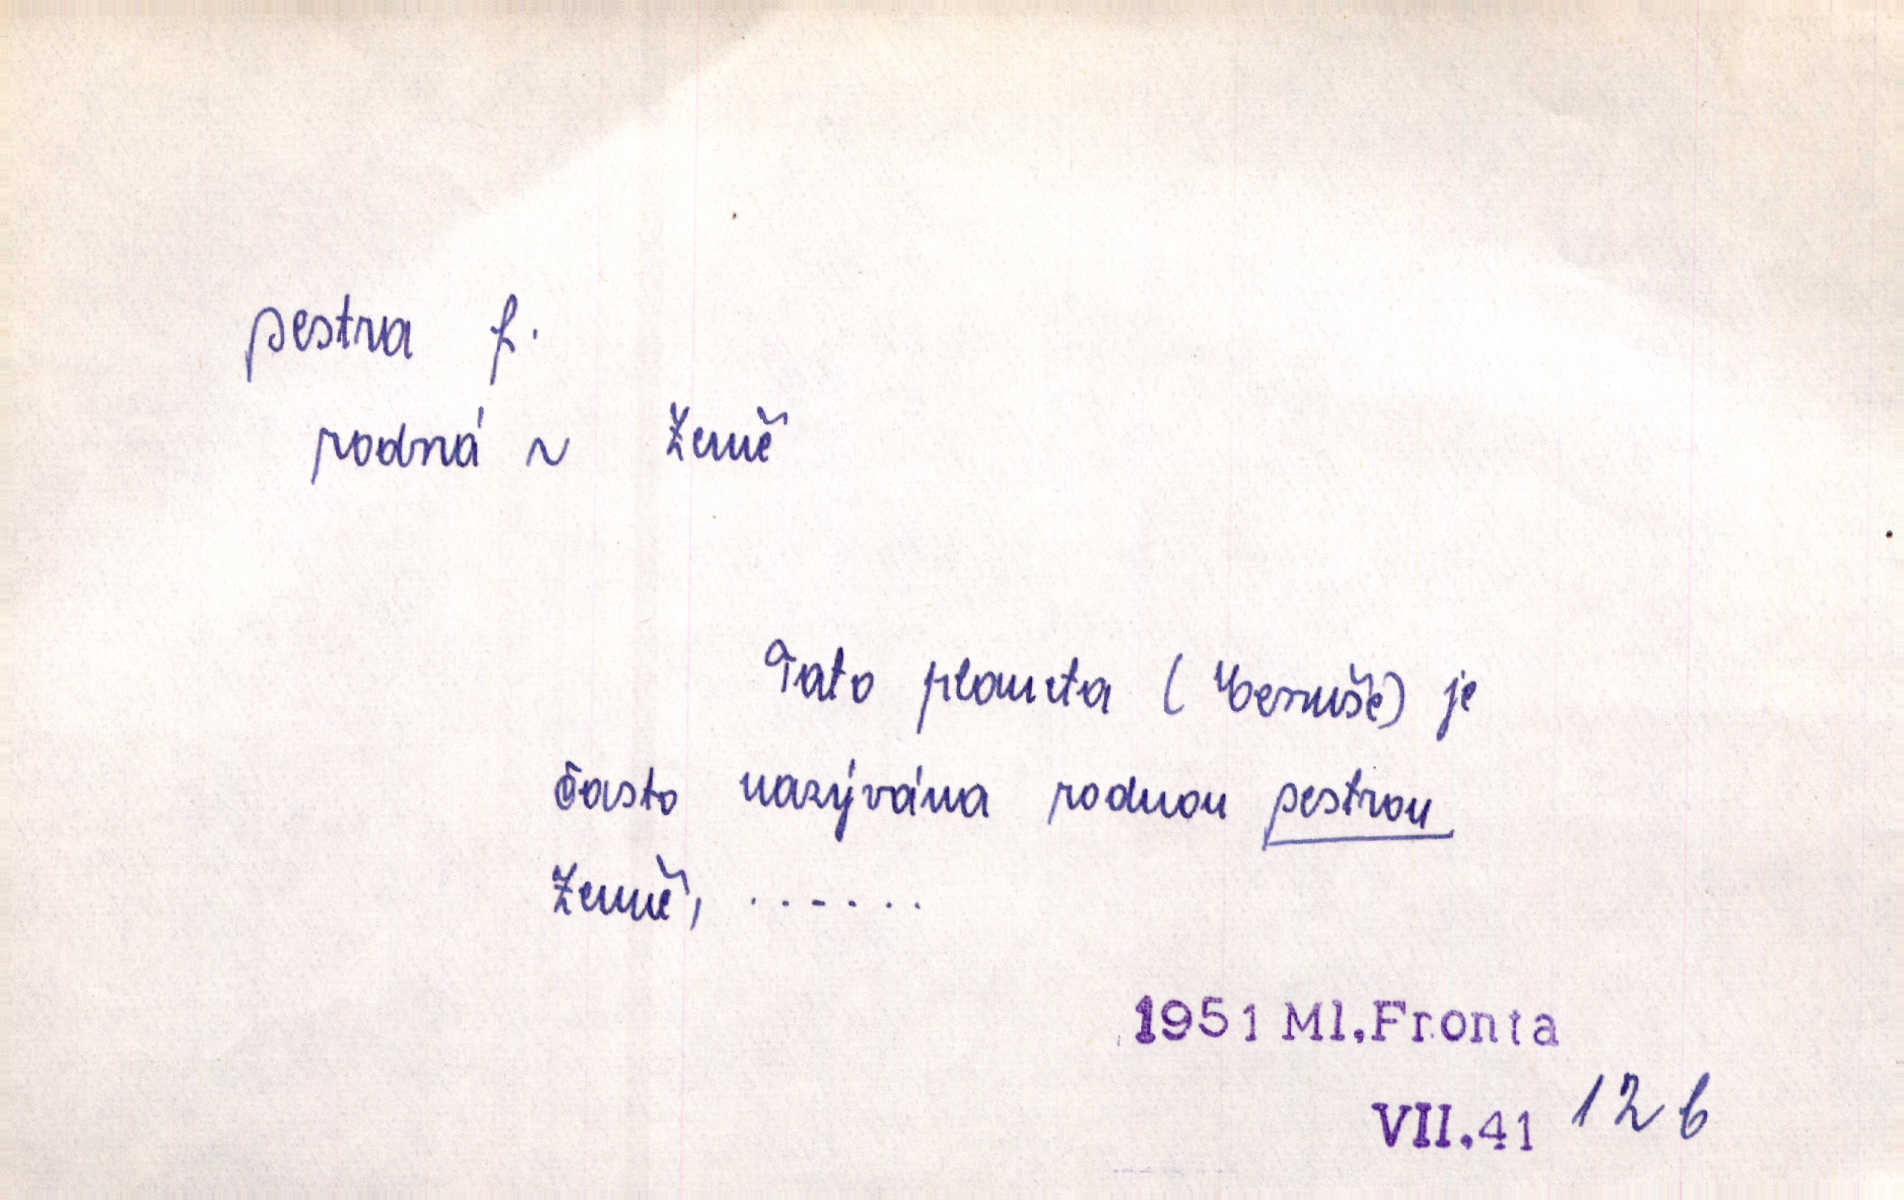 sestra f.
rodná ~ Země
Tato planeta (Venuše) je
často nazývána rodnou sestrou
Země, ......
1951 Ml.Fronta
VII.41 12 b